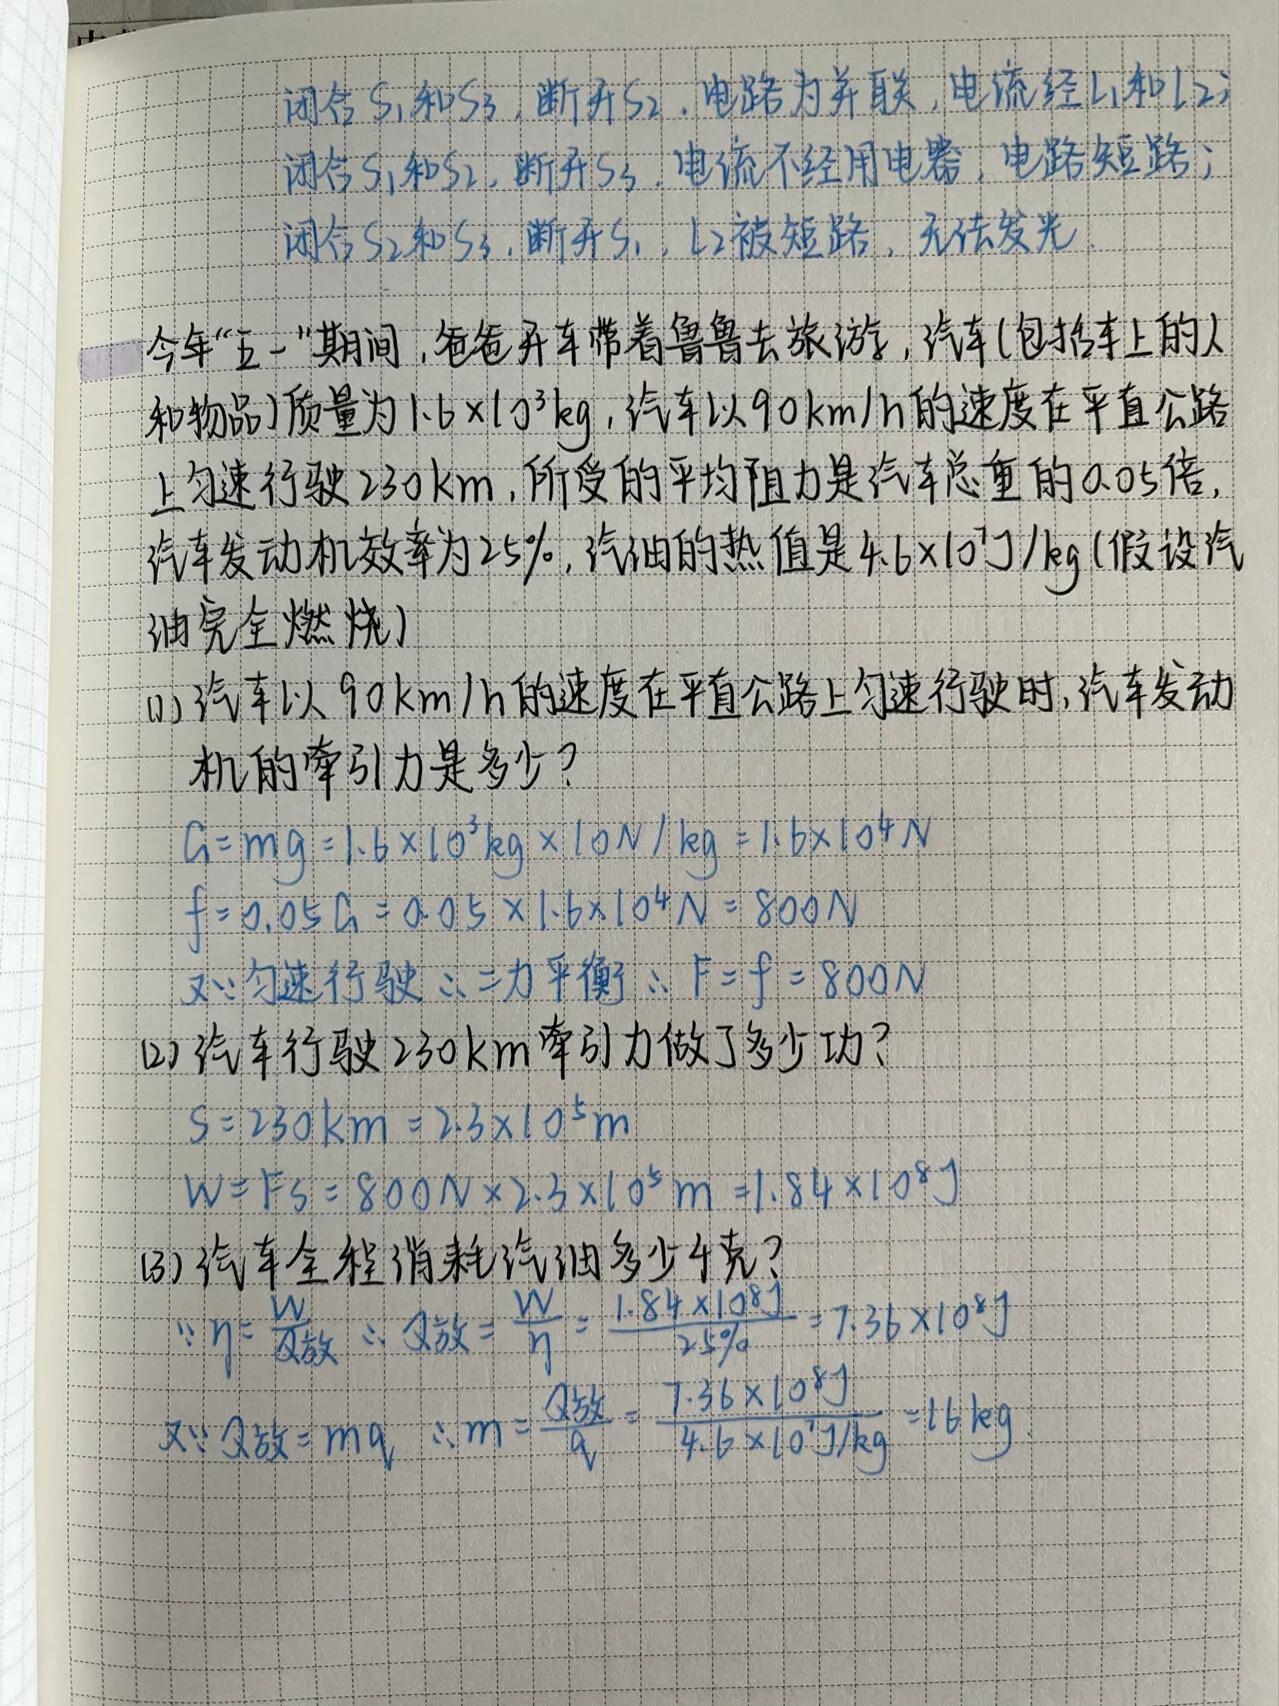 闭合S₁和S₃，断开S₂，电路为并联，电流经L₁和L₂；
闭合S₁和S₂，断开S₃，电流不经用电器，电路短路；
闭合S₂和S₃，断开S₁，L₂被短路，无法发光.
今年“五一”期间，爸爸开车带着鲁鲁去旅游，汽车(包括车上的人
和物品)质量为1.6×10³kg，汽车以90km/h的速度在平直公路
上匀速行驶230km，所受的平均阻力是汽车总重的0.05倍，
汽车发动机效率为25%，汽油的热值是4.6×10⁷J/kg(假设汽
油完全燃烧)
(1)汽车以90km/h的速度在平直公路上匀速行驶时，汽车发动
机的牵引力是多少？
G=mg=1.6×10³kg×10N/kg=1.6×10⁴N
f=0.05G=0.05×1.6×10⁴N=800N
又∵匀速行驶∴二力平衡∴F=f=800N
(2)汽车行驶230km牵引力做了多少功？
S=230km=2.3×10⁵m
W=Fs=800N×2.3×10⁵m=1.84×10⁸J
(3)汽车全程消耗汽油多少千克？
∵η=W/Q放 ∴Q放=W/η=1.84×10⁸J/25%=7.36×10⁸J
又∵Q放=mq ∴m=Q放/q=7.36×10⁸J/4.6×10⁷J/kg=16kg.